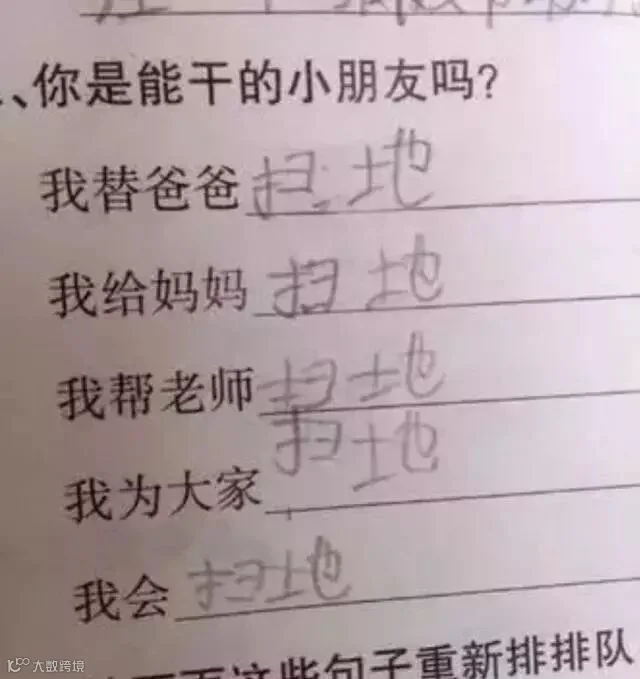 、你是能干的小朋友吗?
我替爸爸扫地
我给妈妈扫地
我帮老师扫地
我为大家扫地
我会扫地
这些句子重新排排队
大数跨境